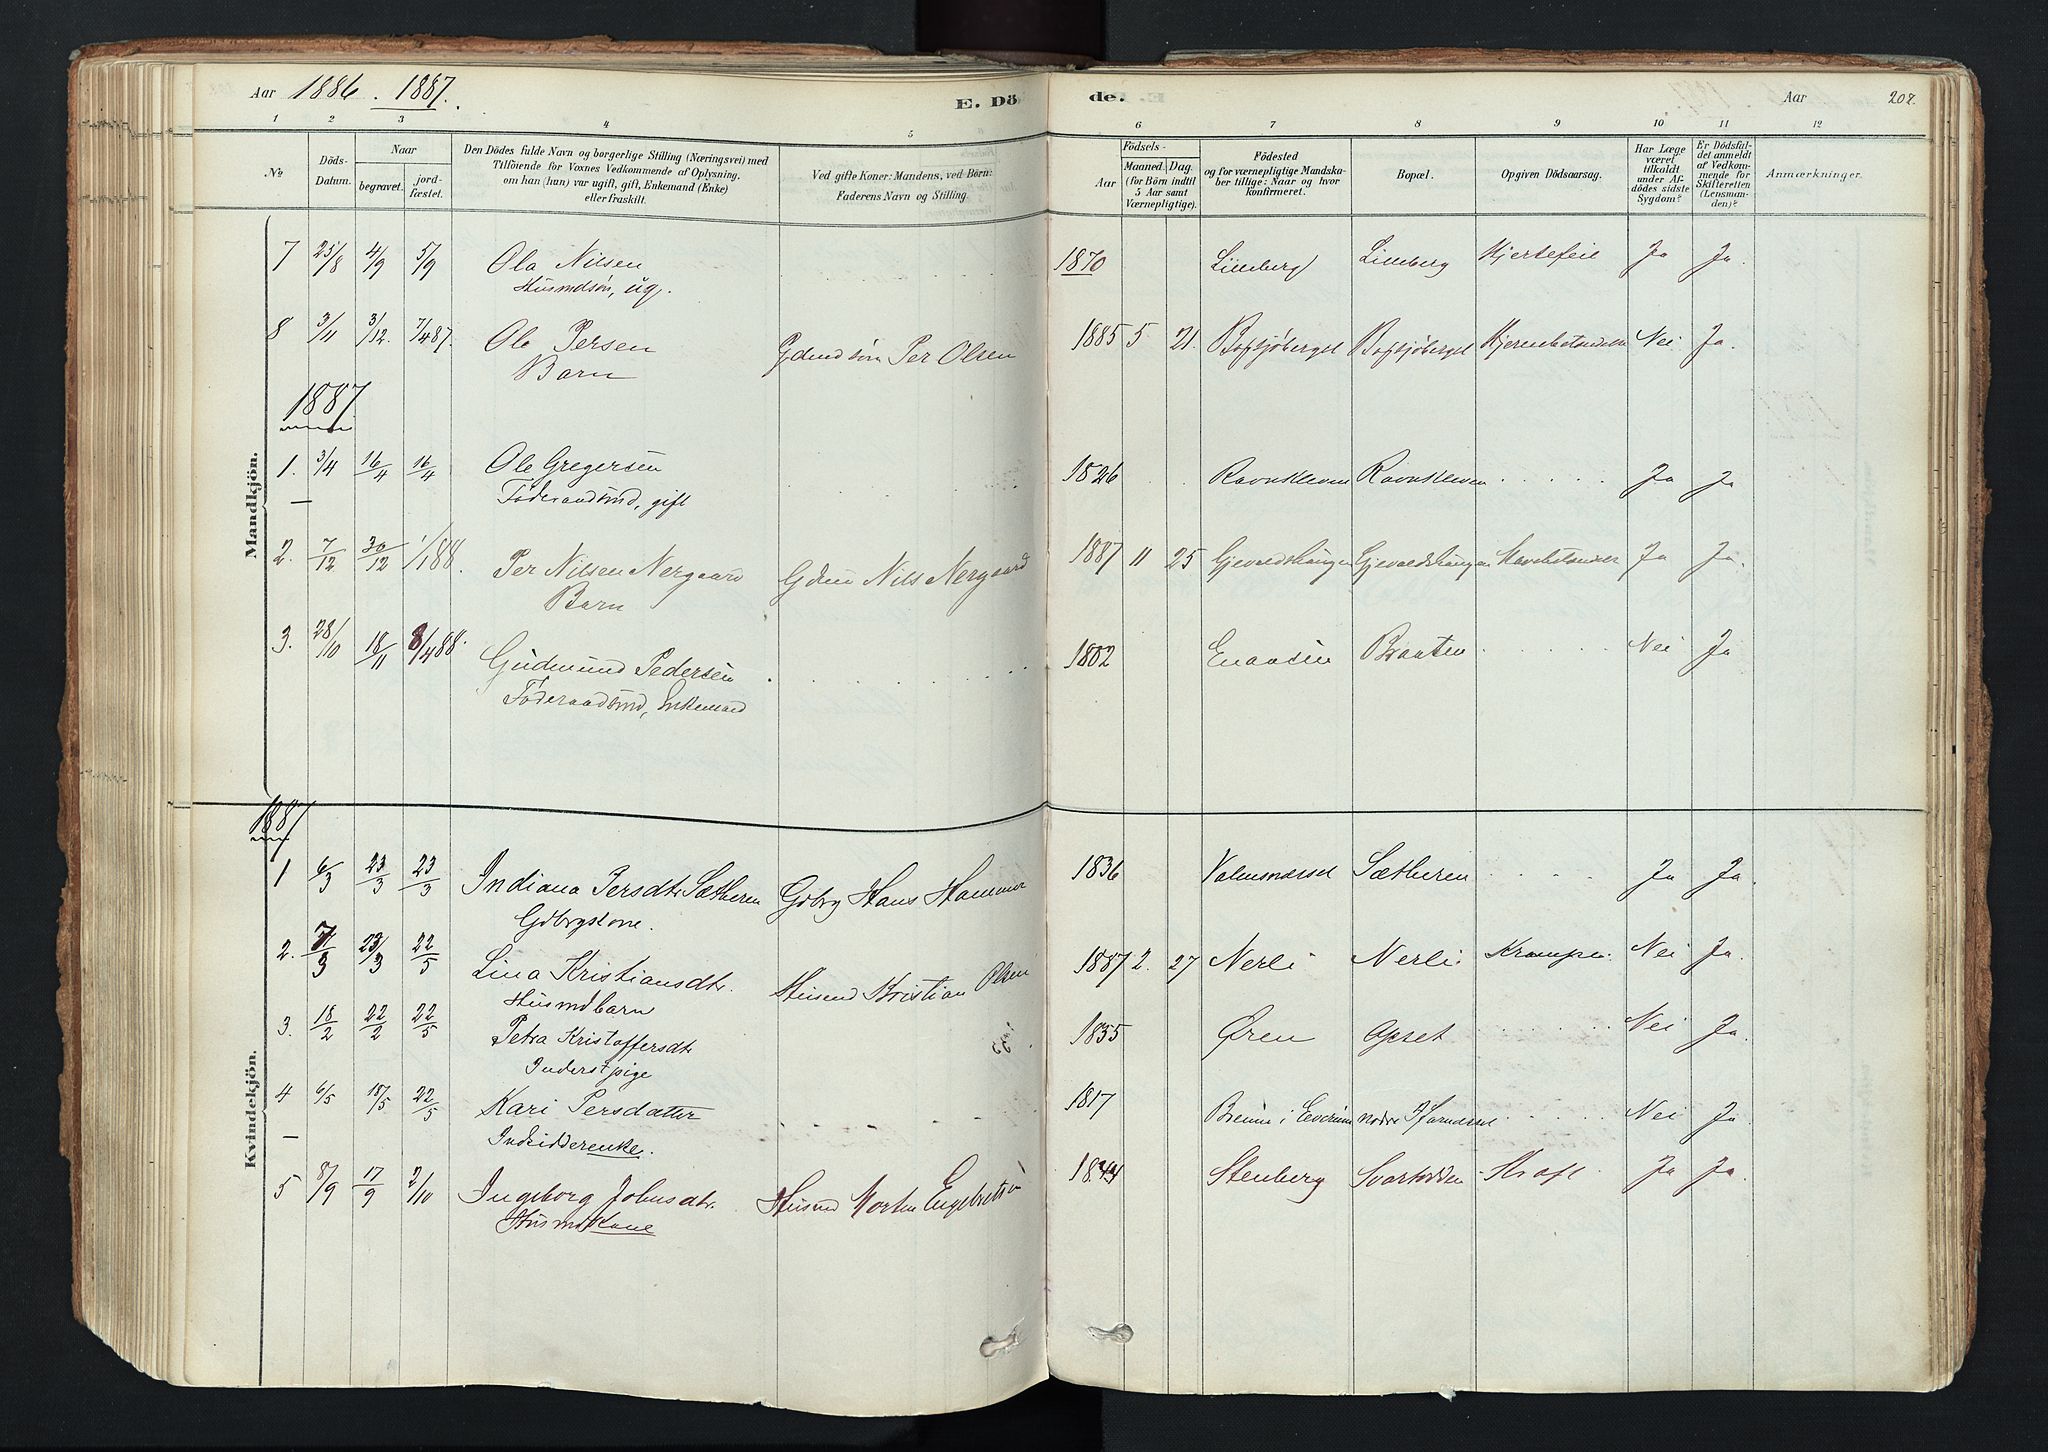 Aar 1886. 1887.
E. Döde.
Aar 202.
1 2 3 4 5 6 7 8 9 10 11 12
No
Döds-Datum.
Naar
begravet.
jordfæstet.
Den Dödes fulde Navn og borgerlige Stilling (Næringsvei) med
Tilföiende for Voxnes Vedkommende af Oplysning,
om han (hun) var ugift, gift, Enkemand (Enke)
eller fraskilt.
Ved gifte Koner: Mandens, ved Börn:
Faderens Navn og Stilling.
Födsels-
Aar
Maaned. Dag.
(for Börn indtil
5 Aar samt
Værnepligtige).
Födested
og for værnepligtige Mandska-
ber tillige: Naar og hvor
konfirmeret.
Bopæl.
Opgiven Dödsaarsag.
Har Læge
været
tilkaldt
under Af-
dödes sidste
Sygdom?
Er Dödsfal-
det anmeldt
af Vedkom-
mende for
Skifteretten
(Lensman-
den)?
Anmærkninger.
Mandkjön.
7 25/8 4/9 5/9 Ola Nilsen 1870 Lilleberg Lilleberg Hjertefeil Ja Ja.
Husmdsøn, ug.
8 3/11 3/12. 7/4 87. Ole Persen Per Olsen 1885 5 21. Nei Ja.
Barn
1887.
1. 3/4 16/4 16/4 Ole Gregersen 1826 Ravnskleven Ravnskleven Ja Ja
Föderaadsmd, gift
2. 7/12 30/12 1/1 88. Per Nilsen Nergaard Gdm Nils Nergaard 1887 11 25 Gjevaldshaugen Gjevaldshaugen Ja Ja.
Barn
3. 28/10 18/11 8/4 88. Gudmund Pedersen 1802 Enaasen Braaten Nei Ja
Föderaadsmd, Enkemand
Kvindekjön.
1887
1 6/3 23/3 23/3 Indiana Persdtr Sætheren Gdbrg Hans Hammer 1836 Valmsnæsset Sætheren Ja Ja.
Gdbrgskone.
2. 7/3 23/3 22/5 Lina Kristiansdtr. Husmd Kristian Olsen 1887 2. 27 Nerli Nerli Krampe. Nei Ja.
Husmdbarn
3. 18/2 22/2 22/5 Petra Kristoffersdtr 1835 Øren Opset Nei Ja.
Inderstpige
4 6/5 18/5 22/5 Kari Persdatter 1817 Nei Ja.
Indsidderenke.
5 8/9 17/9 2/10 Ingeborg Johnsdtr. Husmd Morten Engebretsen Stenberg Svartodden Kræft. Ja Ja.
Husmdskone